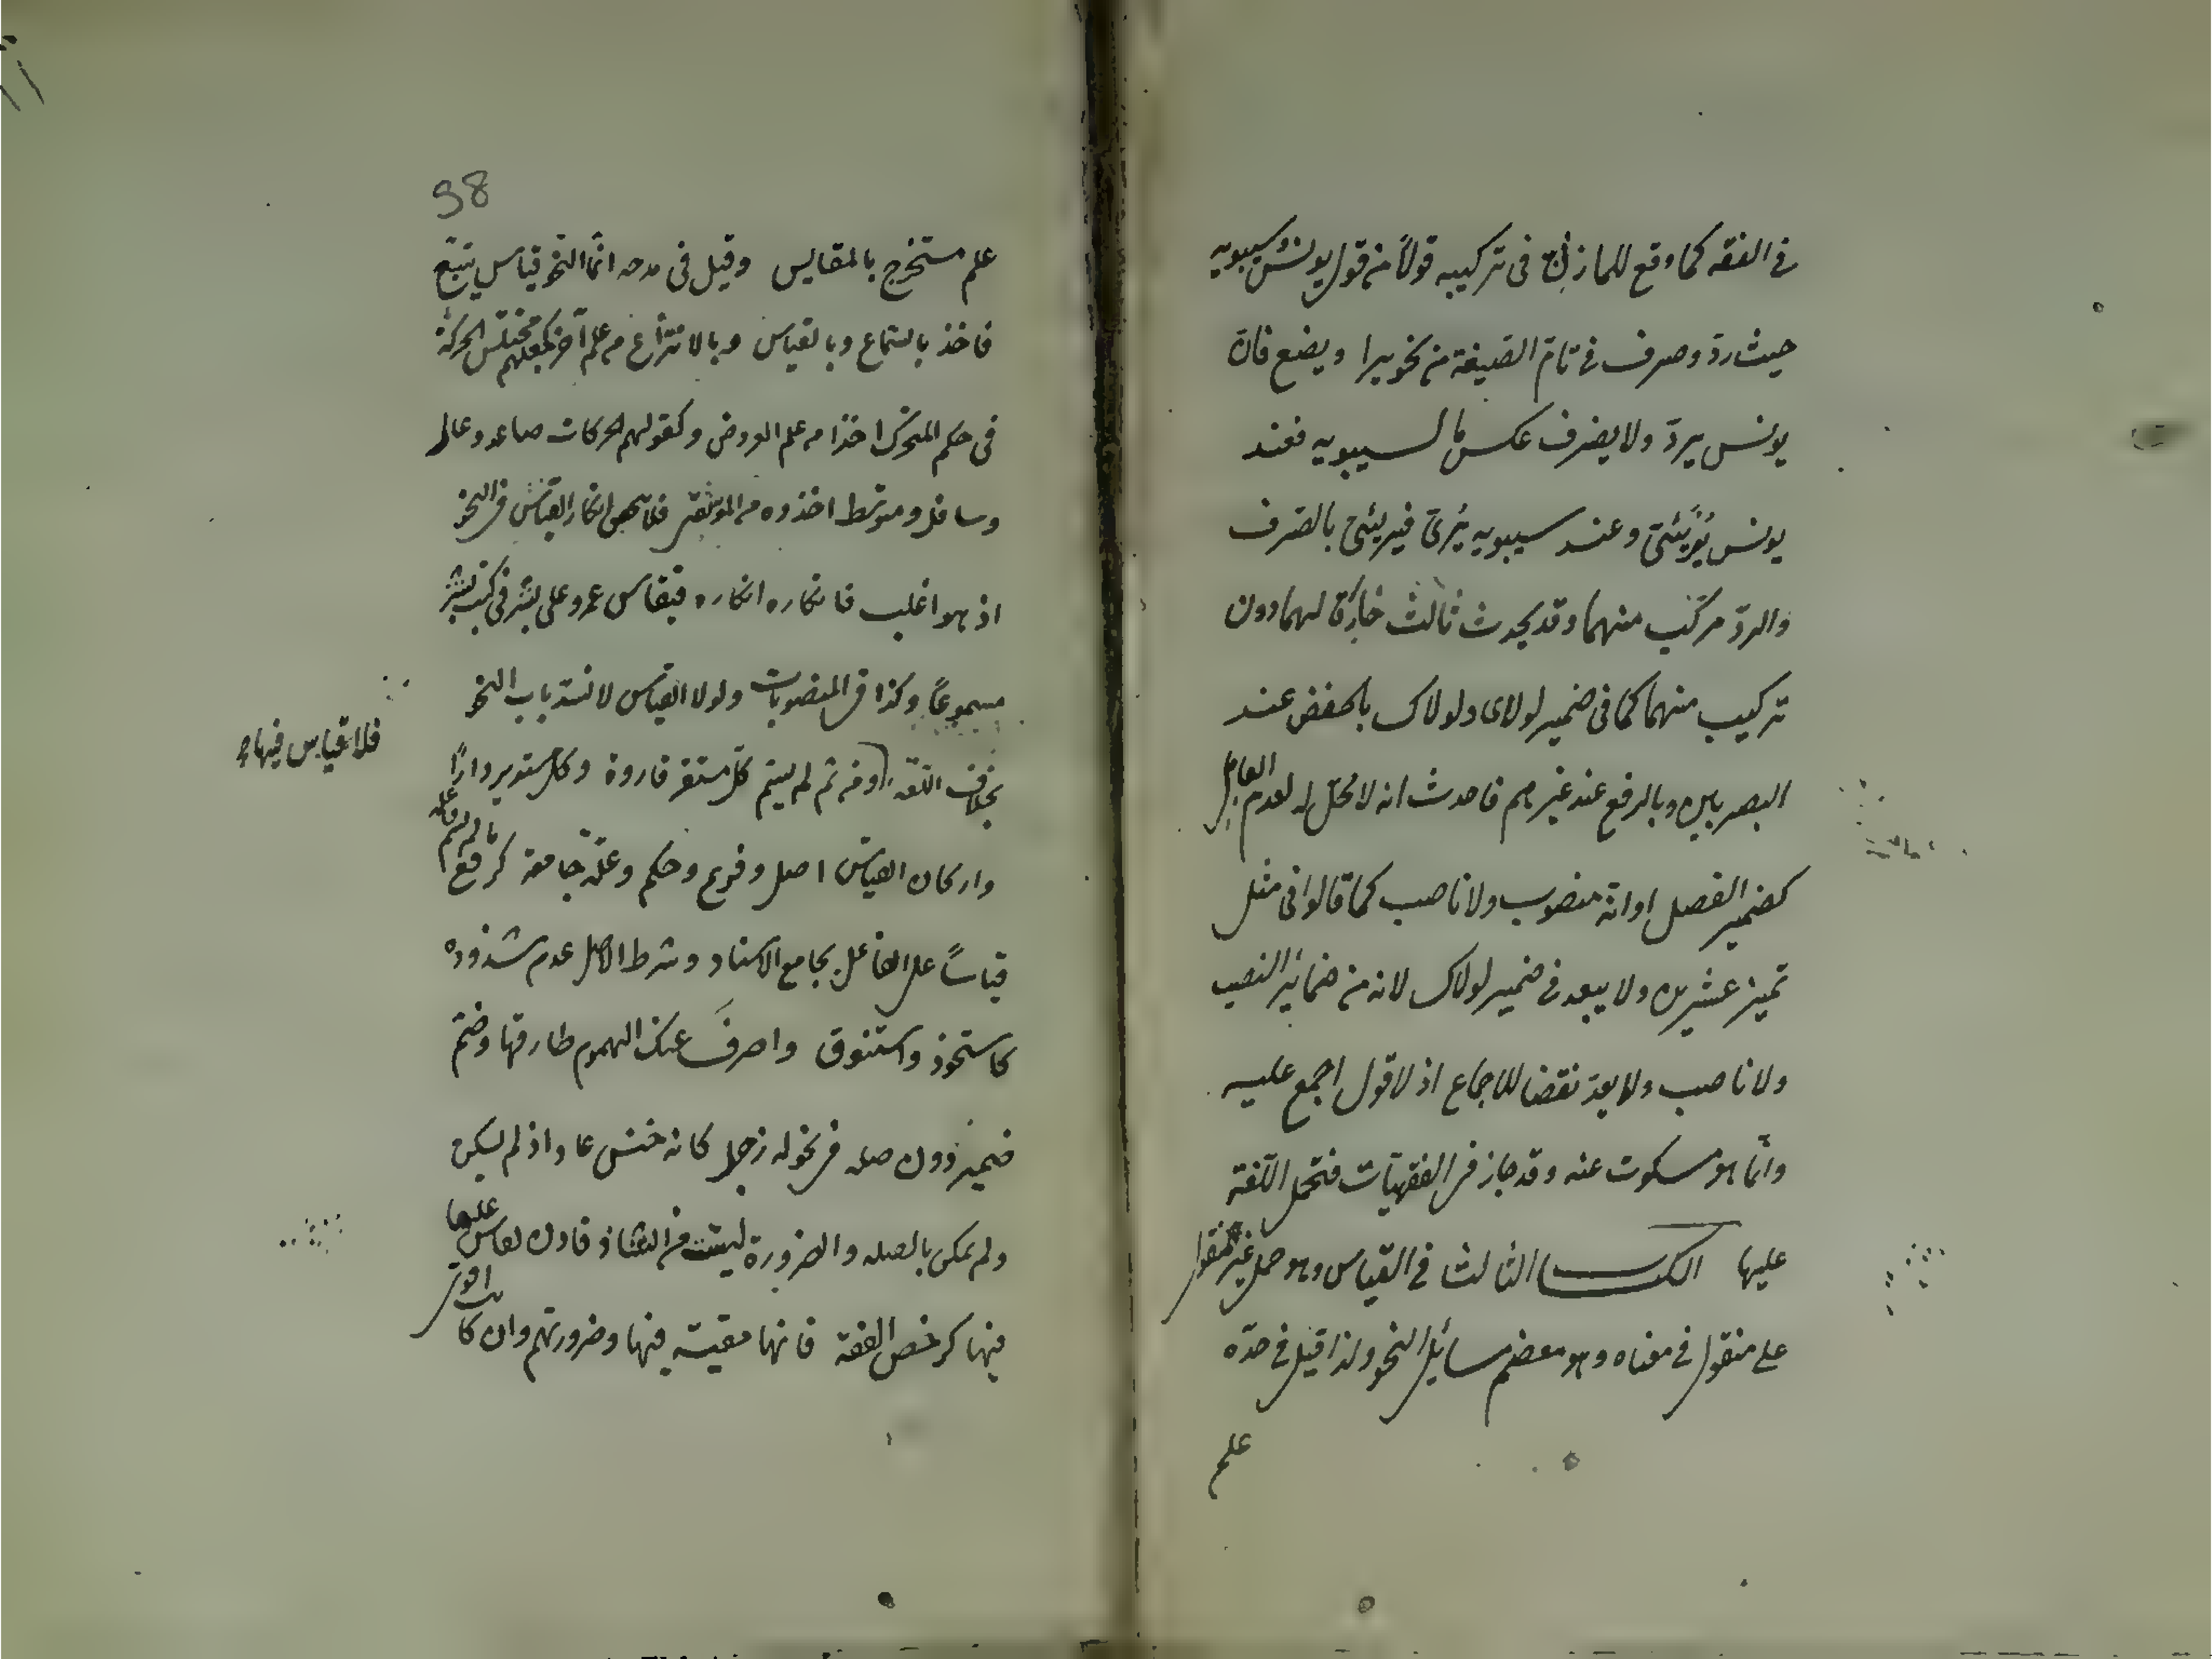 في الفقه كما وقع للمازني في تركيبه قولاً من قول يونس وسيبويه
حيث ردّ وصرف في تامّ الصيغة من نحو يرا ويضع فان
يونس يردّ ولا يصرف عكس ما لسيبويه فعند
يونس يُرَيْئيّ وعند سيبويه يُرىّ فيريئي بالصرف
والردّ مركّب منهما وقد يحدث ثالث خارق لهما دون
تركيب منهما كما في ضمير لولاي ولولاك بالخفض عند
البصريين وبالرفع عند غيرهم فاحدث انه لا محلّ له لعدم العامل
كضمير الفصل او انّه منصوب ولا ناصب كما قالوا في مثل
تميز عشرين ولا يبعد في ضمير لولاك لانه من ضمائر النصب
ولا ناصب ولا يعدّ نقضا للاجماع اذ لا قول اجمع عليه
وانّما هو مسكوت عنه وقد جاز في الفقهيّات فتحمل اللّغة
عليها الكتاب الثالث في القياس وهو حمل غير المنقول
على منقول في معناه وهو معضم مسائل النحو ولذا قيل في حدّه
علم
38
علم مستخرج بالمقايس وقيل في مدحه انّما النحو قياس يتبع
فاخذ بالسّماع وبالقياس وبالانتزاع من علم آخر كجعلهم مختلس الحركة
في حكم المتحرّك اخذا من علم العروض وكقولهم الحركات صاعد وعال
وسافل ومتوسّط اخذوه من الموسيقى فلا يصحّ انكار القياس في النحو
اذ هو اغلب فانكاره انكاره فيقاس عمرو على بشر في كتب بشر
مسموعاً وكذا في المنصوبات ولولا القياس لانسدّ باب النحو
بخلاف اللّغة ومن ثم لم يسم كلّ مستقر قارورة وكل مستدير داراً
فلا قياس فيها
واركان القياس اصل وفرع وحكم وعلّة جامعة كرفع ما لم يسم فاعله
قياساً على الفاعل بجامع الاسناد وشرط الاصل عدم شذوذه
كاستحوذ واستنوق واصرفَ عنك الهموم طارقها وضمّ
ضمير دون صله في نحو له زجل كانه خنس عا واذ لم يكن
ولم يمكن بالصله والضرورة ليست من الشاذ فادن لقاس عليها
فيها كرخص الفقه فانها مقيسة فيها وضرورتهم وان كانت اقوى